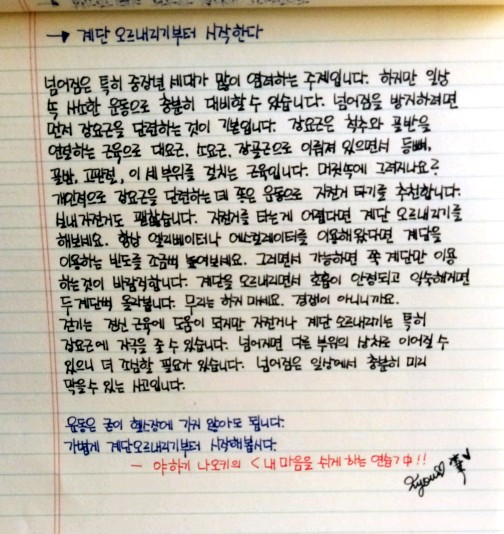 → 계단 오르내리기부터 시작한다
넘어짐은 특히 중장년 세대가 많이 염려하는 주제입니다. 하지만 일상
속 사소한 운동으로 충분히 대비할 수 있습니다. 넘어짐을 방지하려면
먼저 장요근을 단련하는 것이 기본입니다. 장요근은 척추와 골반을
연결하는 근육으로 대요근, 소요근, 장골근으로 이뤄져 있으면서 등뼈,
골반, 고관절, 이 세 부위를 걸치는 근육입니다. 머릿속에 그려지나요?
개인적으로 장요근을 단련하는 데 좋은 운동으로 자전거 타기를 추천합니다.
실내 자전거도 괜찮습니다. 자전거를 타는게 어렵다면 계단 오르내리기를
해보세요. 항상 엘리베이터나 에스컬레이터를 이용해왔다면 계단을
이용하는 빈도를 조금씩 높여보세요. 그러면서 가능하면 쭉 계단만 이용
하는것이 바람직합니다. 계단을 오르내리면서 호흡이 안정되고 익숙해지면
두 계단씩 올라봅니다. 무리는 하지 마세요. 경쟁이 아니니까요.
걷기는 전신 근육에 도움이 되지만 자전거나 계단 오르내리기는 특히
장요근에 자극을 줄 수 있습니다. 넘어지면 다른 부위의 낙차로 이어질 수
있으니 더 조심할 필요가 있습니다. 넘어짐은 일상에서 충분히 미리
막을 수 있는 사고입니다.
운동은 굳이 헬스장에 가지 않아도 됩니다.
가볍게 계단오르내리기부터 시작해봅시다.
- 야하기 나오키의 < 내 마음을 쉬게 하는 연습> 中!!